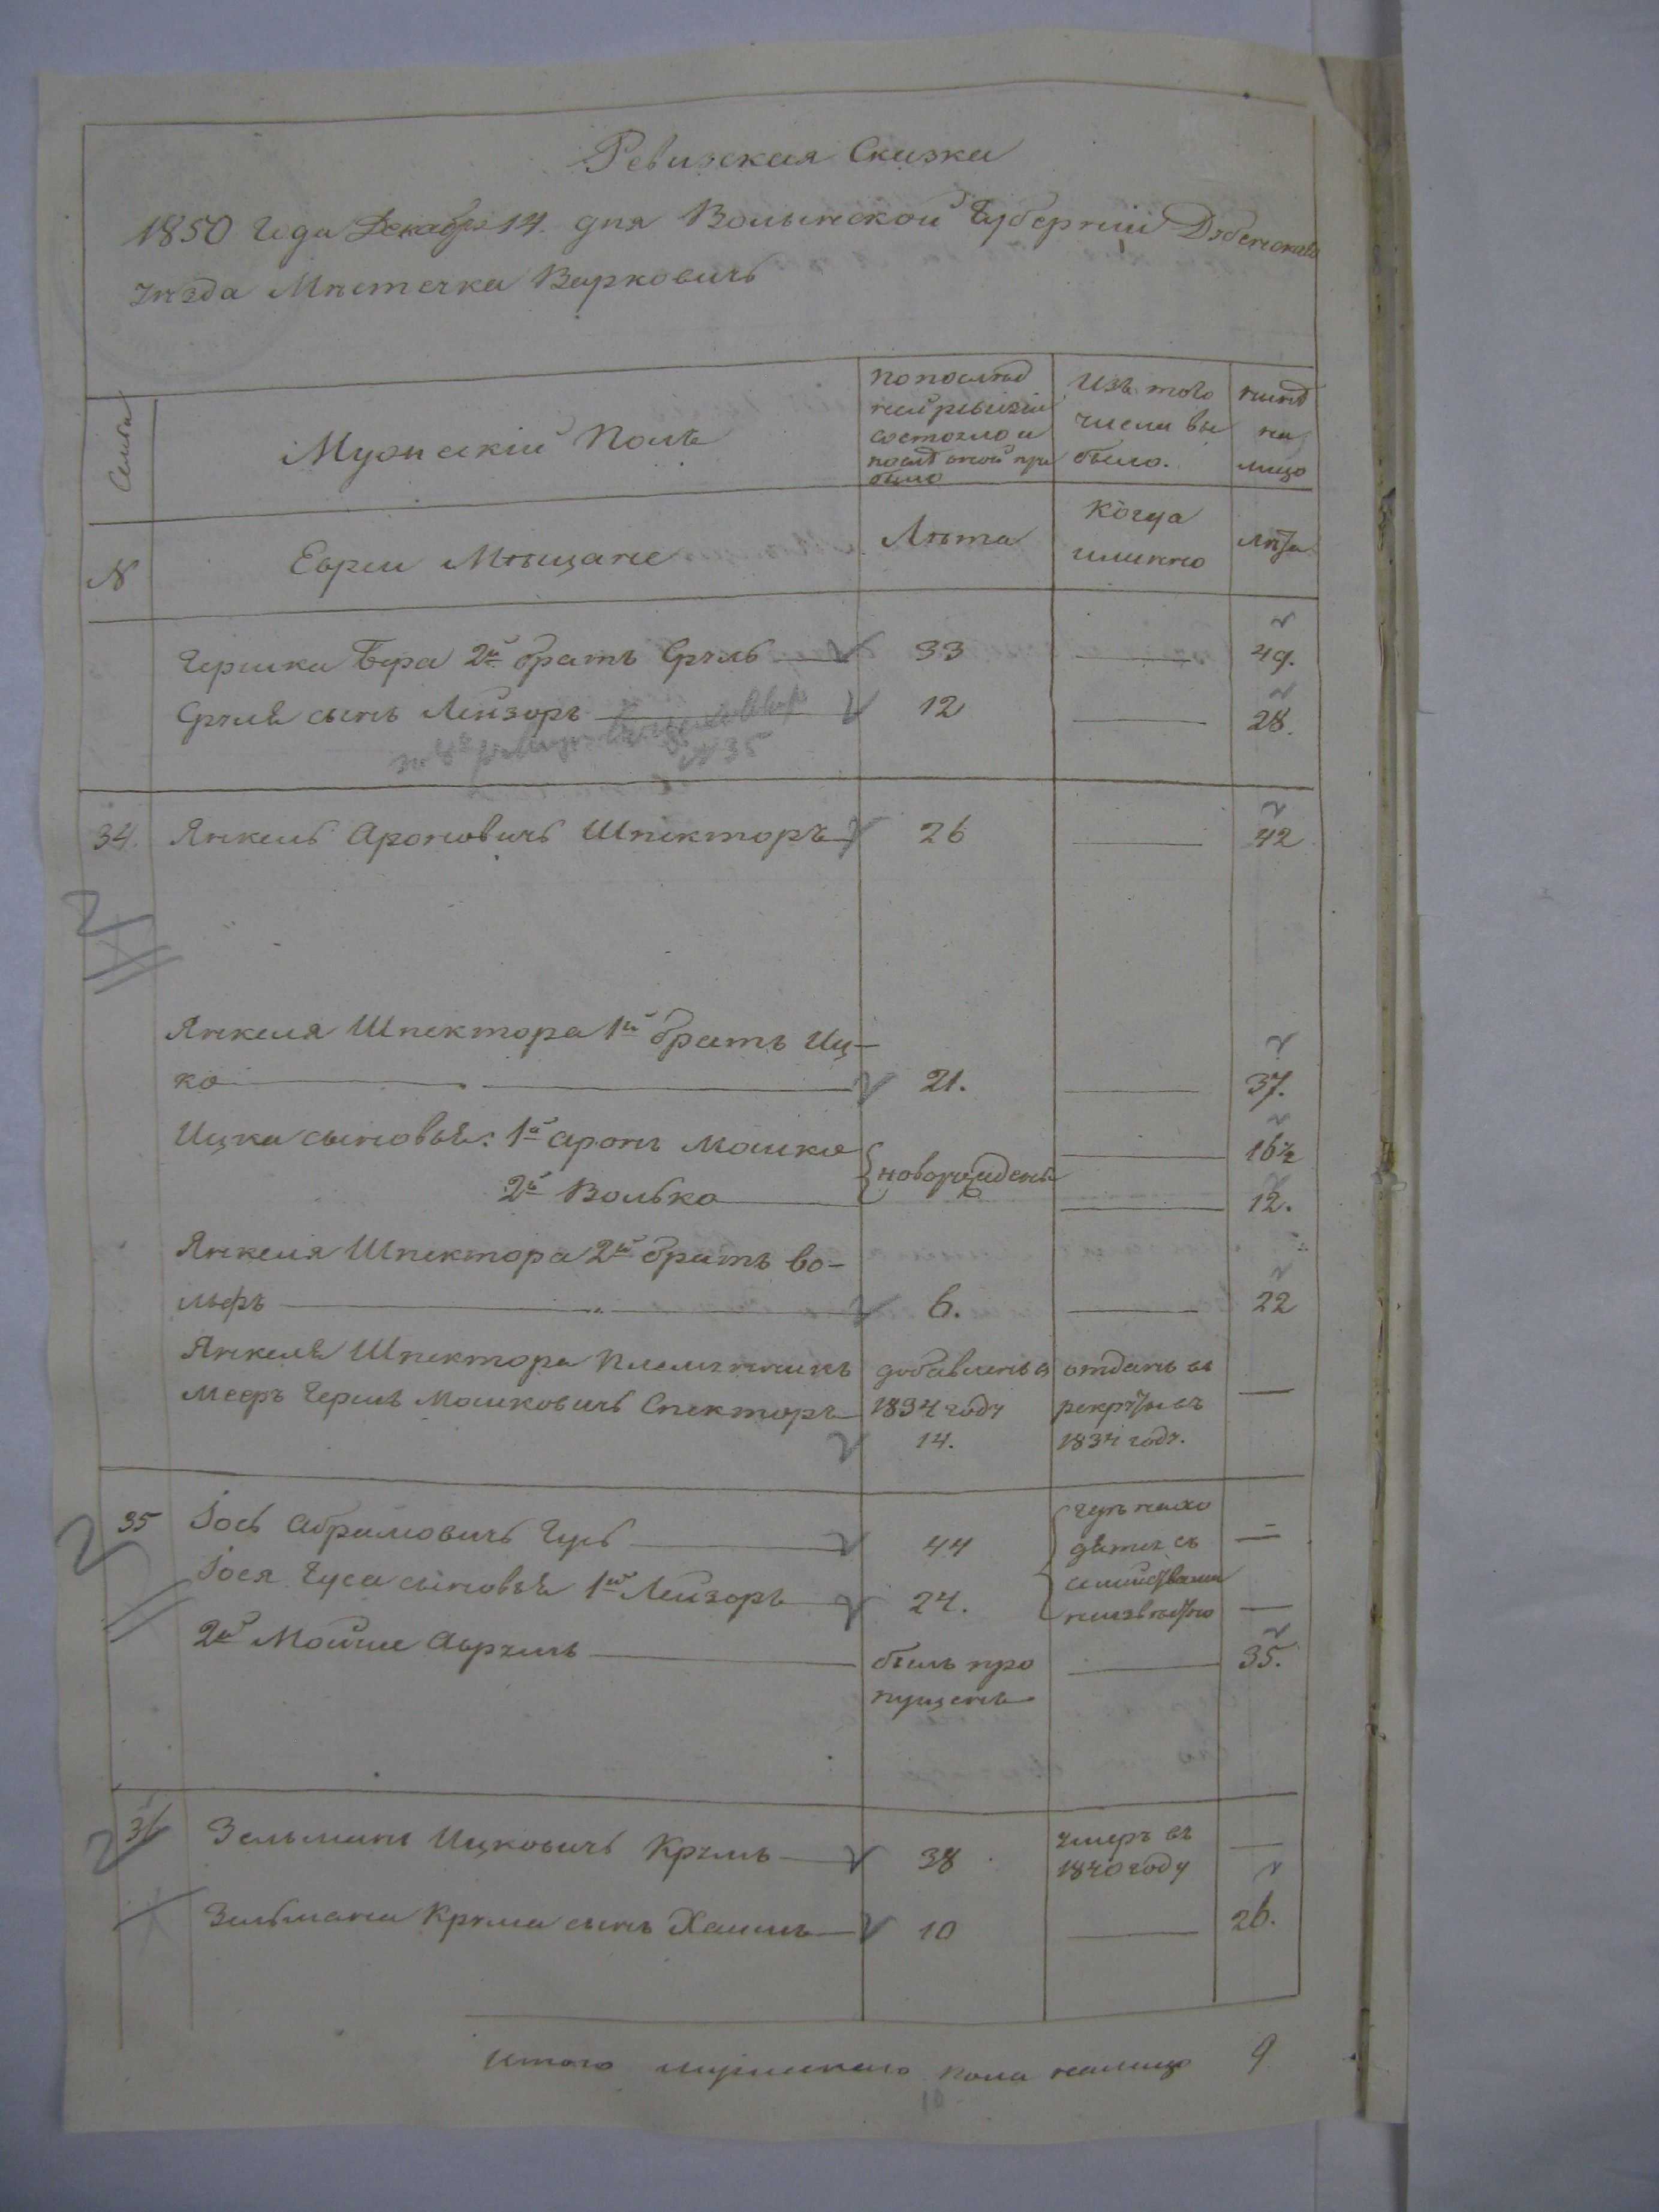 Ревизская Сказка
1850 года Декабря 14. дня Волынской Губерніи Дубенскаго
уѣзда Мѣстечка Варковичь
Семьи
Мужескій Полъ
по послѣд
ней ревизіи
состояло и
послѣ оной при
было
Изъ того
числа вы
было.
нынѣ
на
лицо
N
Евреи Мѣщане
Лѣта
Когда
имянно
лѣта
Гершка Бера 2й братъ Сруль 33 49.
Сруля сынъ Лейзоръ 12 28.
N 35
34. Янкель Ароновичь Шпекторъ 26 42
Янкеля Шпектора 1й братъ Иц-
ко 21. 37.
Ицка сыновья: 1й Аронъ Мошко новорожденъ 16½
2й Волько 12.
Янкеля Шпектора 2й братъ Во-
льфъ 6. 22
Янкеля Шпектора племянникъ добавленъ в отданъ въ
Мееръ Гершъ Мошковичь Спекторъ 1834 году рекруты въ
14. 1834 году.
35 Іось Абрамовичь Гусь 44 гдѣ нахо
дятся съ
Іося Гуса сыновья 1й Лейзоръ 24. семействами
неизвѣстно
2й Мойше Аврумъ былъ про 35.
пущенъ
36 Зельманъ Ицковичь Крумъ 38 умеръ въ
1840 году
Зельмана Крума сынъ Хаимъ 10 26.
Итого мужескаго пола налицо 9